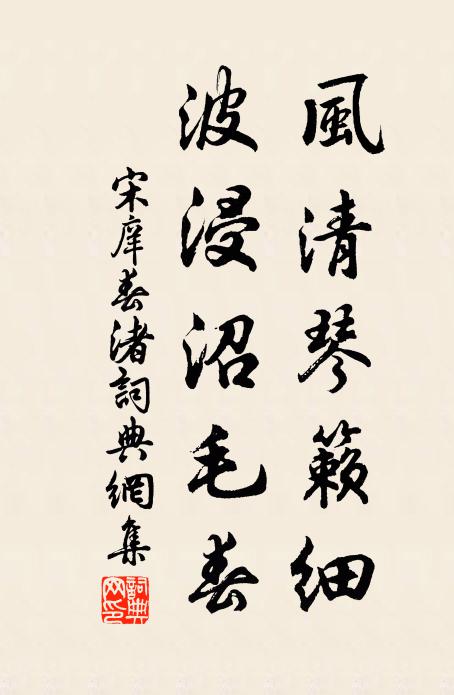 風清琴籟細
波浸沼毛春
宋庠春渚詞典網集
詞典網印